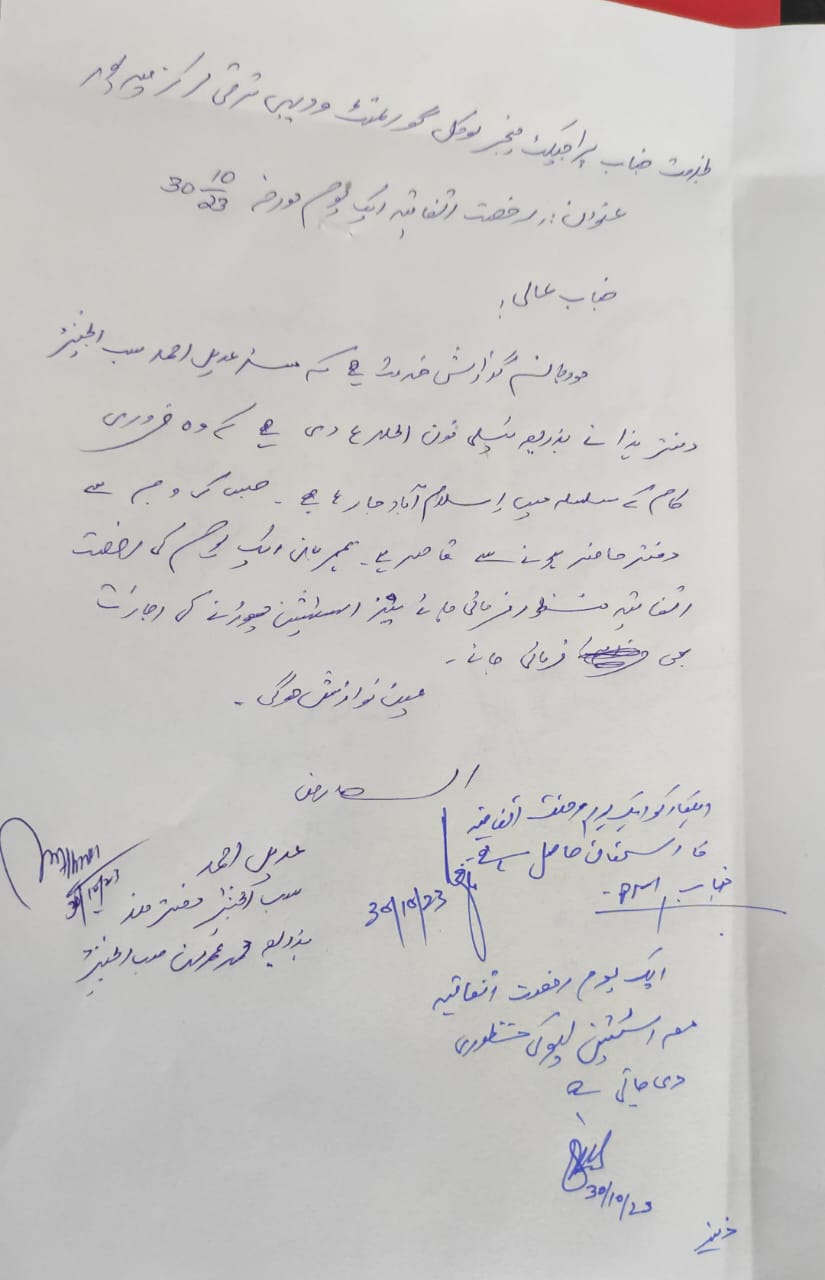 بخدمت جناب پراجیکٹ منیجر لوکل گورنمنٹ و دیہی ترقی مرکز میرپور
عنوان :۔ رخصت اتفاقیہ ایک یوم مورخہ 30 10/23
جناب عالی!
مودبانہ گزارش خدمت ہے کہ مسٹر عدیل احمد سب انجینئر
دفتر ہذا نے بذریعہ ٹیلی فون اطلاع دی ہے کے وہ ضروری
کام کے سلسلہ میں اسلام آباد جا رہا ہے۔ جس کی وجہ سے
دفتر حاضر ہونے سے قاصر ہے۔ مہربانی ایک یوم کی رخصت
اتفاقیہ منظور فرمائی جائے نیز اسٹیشن چھوڑنے کی اجازت
بھی فرمائی جائے۔
عین نوازش ہوگی۔
العارض
عدیل احمد
سب انجینئر دفتر ھذا
بذریعہ محمد سب انجینئر
30/10/23
اہلکار کو ایک یوم رخصت اتفاقیہ
کا استحقاق حاصل ہے۔
جناب
30/10/23
ایک یوم رخصت اتفاقیہ
معہ اسٹیشن لیو کی منظوری
دی جاتی ہے
30/10/23